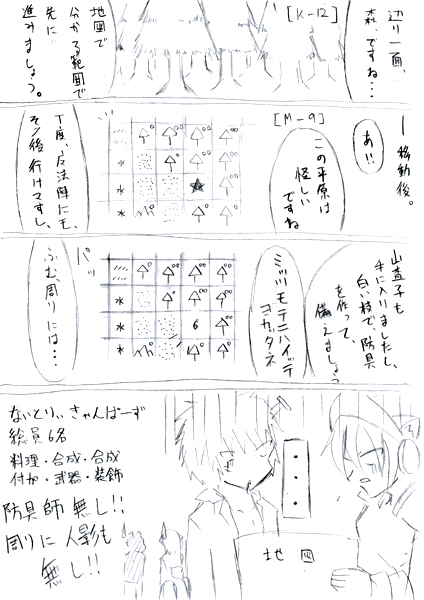 [K-12]
辺り一面、
森、ですね…
地図で
分かる範囲で
先に
進みましょう。
ー移動後。
[M-9]
あ、、
この平原は
怪しい
ですね
丁度、魔法陣にモ、
そノ後行けマスし、
山査子も
手に入りましたし、
白い枝で、防具
を作って、
備えましょう
ミッツモテニハイッテ
ヨカッタネ
パッ
6
ふむ、周りには…
・・・
ないとりぃきゃんぱーず
総員6名
料理・合成・合成
付加・武器・装飾
防具師無し!!
周りに人影も
無し!!
地図